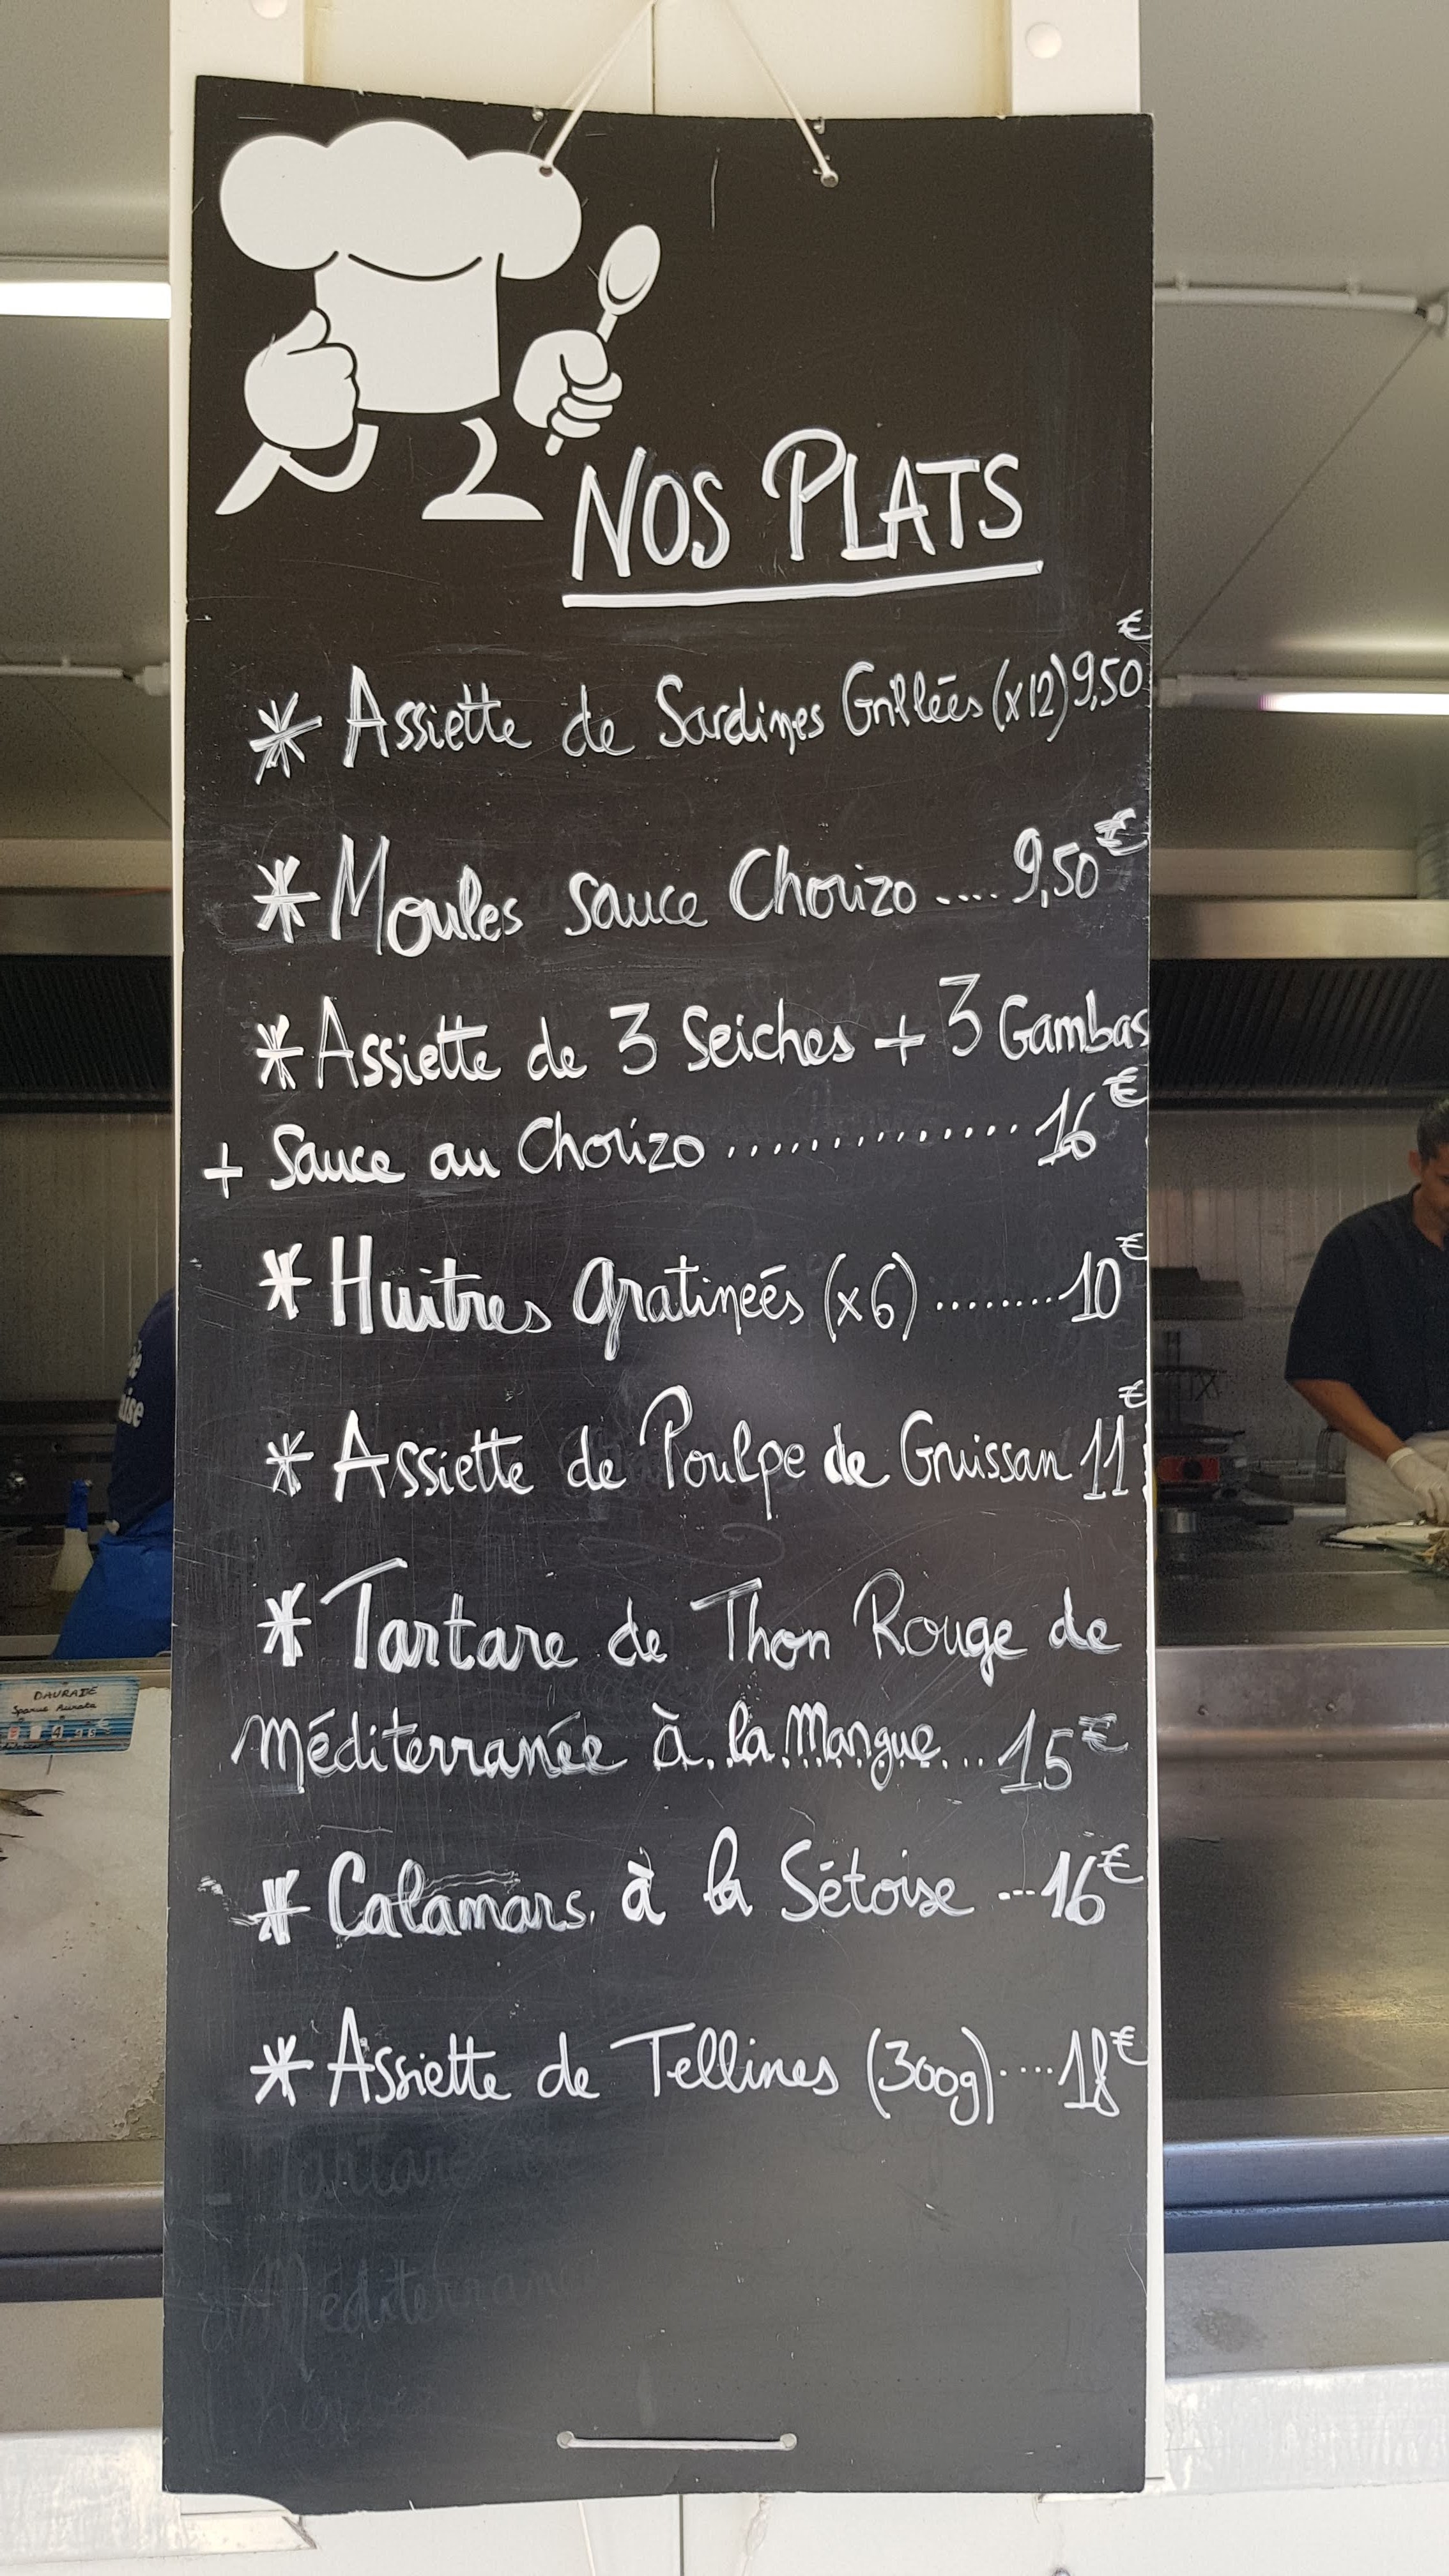 NOS PLATS
* Assiette de Sardines Grillées (x12) 9,50€
* Moules sauce Chorizo .... 9,50€
* Assiette de 3 Seiches + 3 Gambas
+ Sauce au Chorizo .............. 16€
* Huitres gratineés (x6) ........ 10€
* Assiette de Poulpe de Gruissan 11€
* Tartare de Thon Rouge de
Méditerranée à la Mangue... 15€
* Calamars à la Sétoise ... 16€
* Assiette de Tellines (300g) .... 18€
Tartare
Méditerran
DAURADE
Sparus Aurata